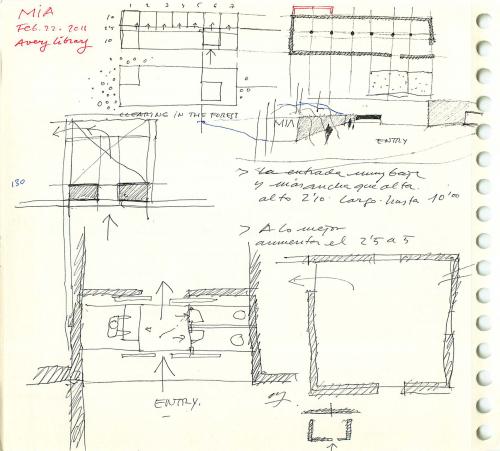 MiA
Feb. 22. 2011
Avery Library
1 2 3 4 5 6 7
10
10
CLEARING IN THE FOREST
MIA
ENTRY
130
> La entrada muy baja
y más ancha que alta.
alto 2'10. Largo. hasta 10'00
> A lo mejor
aumentar el 2'5 a 5
ENTRY.